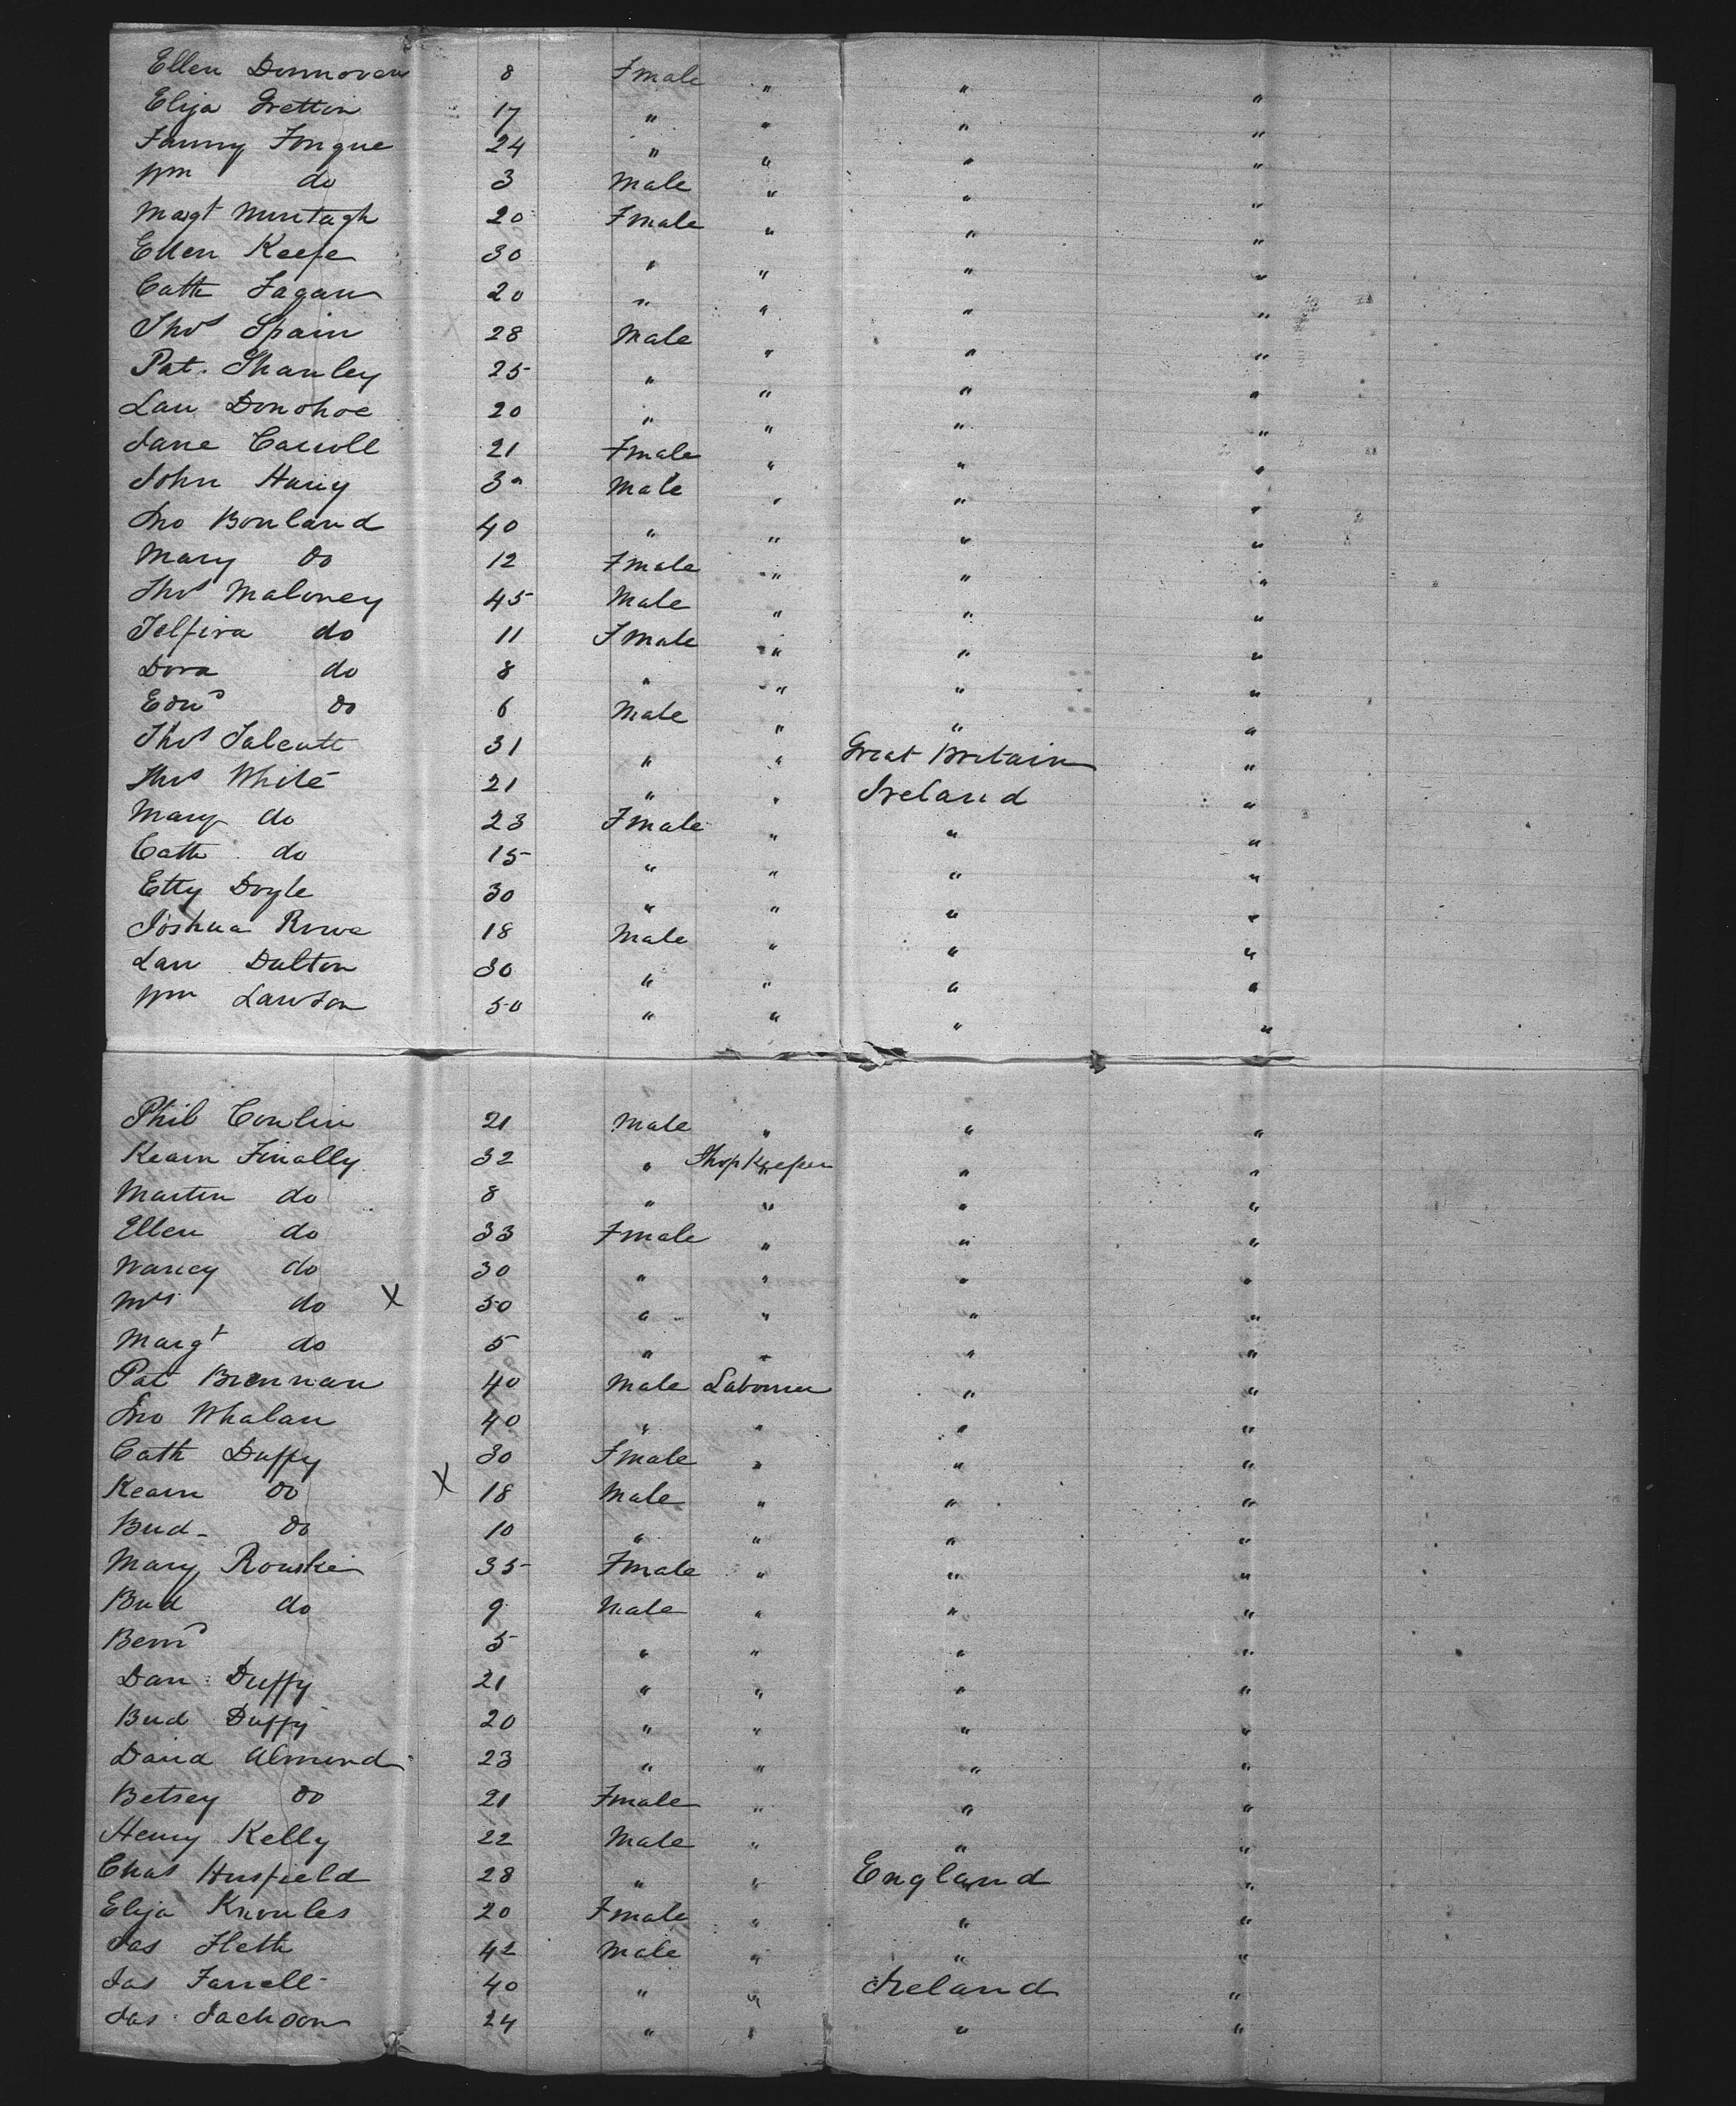 Ellen Donnovan 8 Female " " "
Eliza Gretton 17 " " " "
Fanny Tongue 24 " " " "
Wm do 3 Male " " "
Margt Murtagh 20 Female " " "
Ellen Keefe 30 " " " "
Cath Fagan 20 " " " "
Thos Spain 28 Male " " "
Pat. Shanley 25 " " " "
Lau Donohoe 20 " " " "
Jane Carroll 21 Female " " "
John Harry 30 Male " " "
Jno Bouland 40 " " " "
Mary Do 12 Female " " "
Thos Maloney 45 Male " " "
do 11 Female " " "
Dora do 8 " " " "
Edwd Do 6 Male " " "
Thos Talcutt 31 " " Great Britain "
Thos White 21 " " Ireland "
Mary do 23 Female " " "
Cath do 15 " " " "
Etty Doyle 30 " " " "
Joshua Rowe 18 Male " " "
Lau Dalton 30 " " " "
Wm Lawson 50 " " " "
Phil Conlin 21 Male " " "
Kearn Finally 32 " Shop Keeper " "
Martin do 8 " " " "
Ellen do 33 Female " " "
Nancy do 30 " " " "
Mrs do X 50 " " " "
Margt do 5 " " " "
Pat Brennan 40 Male Labourer " "
Jno Whalan 40 " " " "
Cath Duffy 30 Female " " "
Kearn Do X 18 Male " " "
Bud- Do 10 " " " "
Mary Rourke 35 Female " " "
Bud do 9 Male " " "
Bernd 5 " " " "
Dan Duffy 21 " " " "
Bud Duffy 20 " " " "
David Almond 23 " " " "
Betsey Do 21 Female " " "
Henry Kelly 22 Male " " "
Chas Husfield 28 " " England "
Eliza Knowles 20 Female " " "
Jas Heth 42 Male " " "
Jas Farrell 40 " " Ireland "
Jas Jackson 24 " " " "